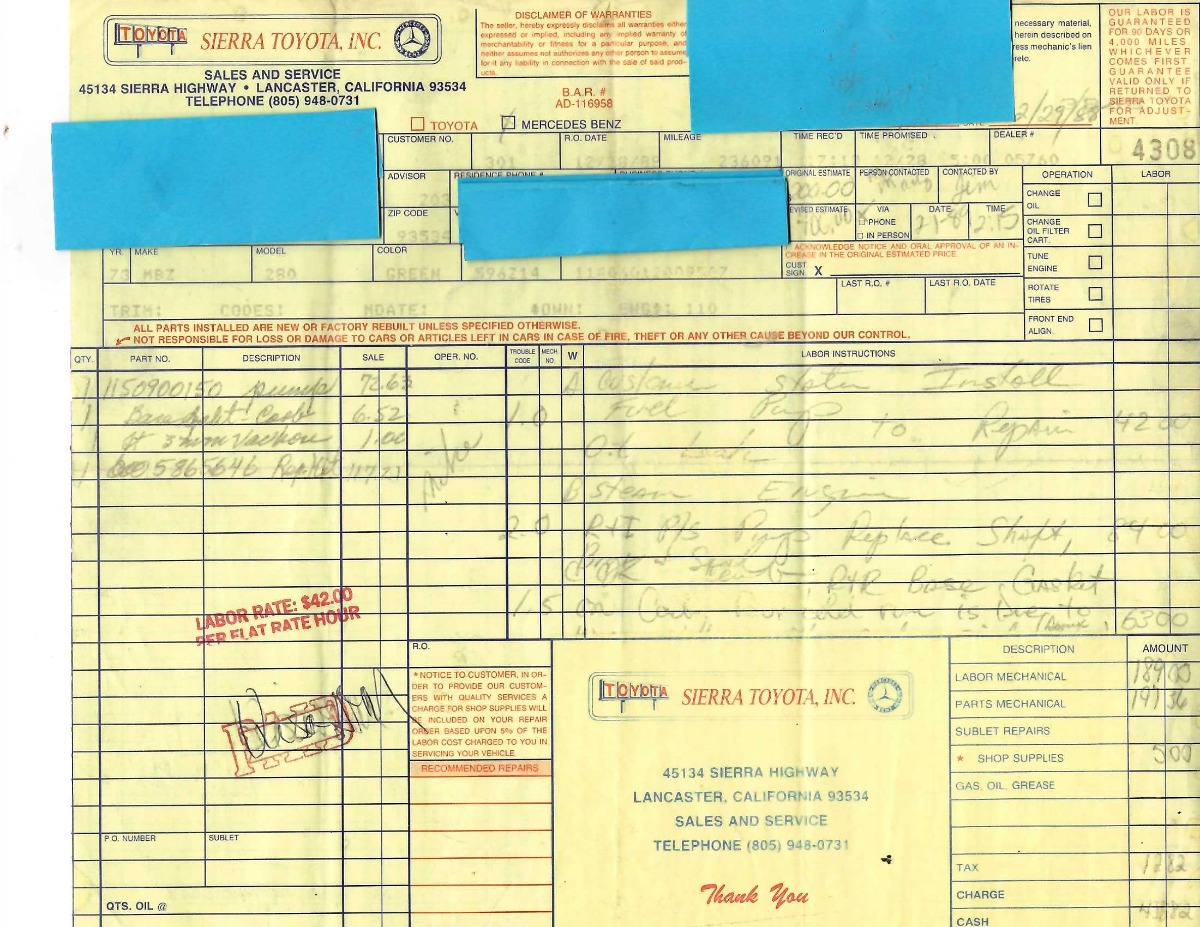 TOYOTA SIERRA TOYOTA, INC.
SALES AND SERVICE
45134 SIERRA HIGHWAY • LANCASTER, CALIFORNIA 93534
TELEPHONE (805) 948-0731
DISCLAIMER OF WARRANTIES
The seller, hereby expressly disclaims all warranties either
expressed or implied, including any implied warranty of
merchantability or fitness for a particular purpose, and
neither assumes not authorizes any other person to assume
for it any liability in connection with the sale of said prod-
ucts.
B.A.R. #
AD-116958
TOYOTA MERCEDES BENZ
necessary material,
herein described on
ess mechanic's lien
reto.
OUR LABOR IS
GUARANTEED
FOR 90 DAYS OR
4,000 MILES
WHICHEVER
COMES FIRST.
GUARANTEE
VALID ONLY IF
RETURNED TO
SIERRA TOYOTA
FOR ADJUST-
MENT.
CUSTOMER NO. R.O. DATE MILEAGE TIME REC'D TIME PROMISED DEALER #
301 236091 5:00 05760 4308
ADVISOR RESIDENCE PHONE #
203
ORIGINAL ESTIMATE PERSON CONTACTED CONTACTED BY
Jim
OPERATION LABOR
ZIP CODE
93534
REVISED ESTIMATE VIA DATE TIME
PHONE
IN PERSON
CHANGE
OIL
CHANGE
OIL FILTER
CART.
TUNE
ENGINE
ROTATE
TIRES
FRONT END
ALIGN.
I ACKNOWLEDGE NOTICE AND ORAL APPROVAL OF AN IN-
CREASE IN THE ORIGINAL ESTIMATED PRICE.
CUST
SIGN X
YR. MAKE MODEL COLOR
73 MBZ 280 GREEN 596Z14
LAST R.O. # LAST R.O. DATE
TRIM: CODES: MDATE: DOWN: ENG#: 110
ALL PARTS INSTALLED ARE NEW OR FACTORY REBUILT UNLESS SPECIFIED OTHERWISE.
NOT RESPONSIBLE FOR LOSS OR DAMAGE TO CARS OR ARTICLES LEFT IN CARS IN CASE OF FIRE, THEFT OR ANY OTHER CAUSE BEYOND OUR CONTROL.
QTY. PART NO. DESCRIPTION SALE OPER. NO. TROUBLE CODE MECH. NO. W LABOR INSTRUCTIONS
1 1150900150 pump 72.63 A Customer states Install
1 6.52 1.0 Fuel Pump to Repair 42 00
1 1.00 Oil Leak
1 5865646 Rep Kit 117.21
B Steam Engine
2.0 R+I P/S Pump Replace Shaft, 84 00
R+R Base Gasket
1.5 on 63 00
LABOR RATE: $42.00
PER FLAT RATE HOUR
PAID
R.O.
* NOTICE TO CUSTOMER, IN OR-
DER TO PROVIDE OUR CUSTOM-
ERS WITH QUALITY SERVICES A
CHARGE FOR SHOP SUPPLIES WILL
BE INCLUDED ON YOUR REPAIR
ORDER BASED UPON 5% OF THE
LABOR COST CHARGED TO YOU IN
SERVICING YOUR VEHICLE.
RECOMMENDED REPAIRS
TOYOTA SIERRA TOYOTA, INC.
45134 SIERRA HIGHWAY
LANCASTER, CALIFORNIA 93534
SALES AND SERVICE
TELEPHONE (805) 948-0731
Thank You
DESCRIPTION AMOUNT
LABOR MECHANICAL 189 00
PARTS MECHANICAL 197 36
SUBLET REPAIRS
* SHOP SUPPLIES 5 00
GAS, OIL, GREASE
TAX
CHARGE
CASH
P.O. NUMBER SUBLET
QTS. OIL @